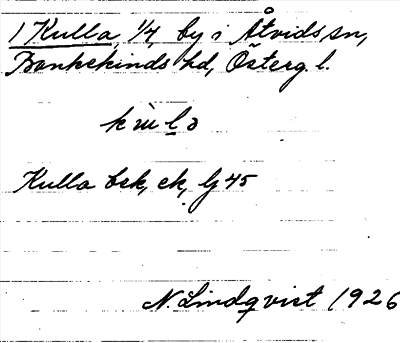 1 Kulla, 1/4, by i Åtvids sn,
Bankekinds hd, Österg. l.
Kulla bek, ek, lj 45
N. Lindqvist 1926